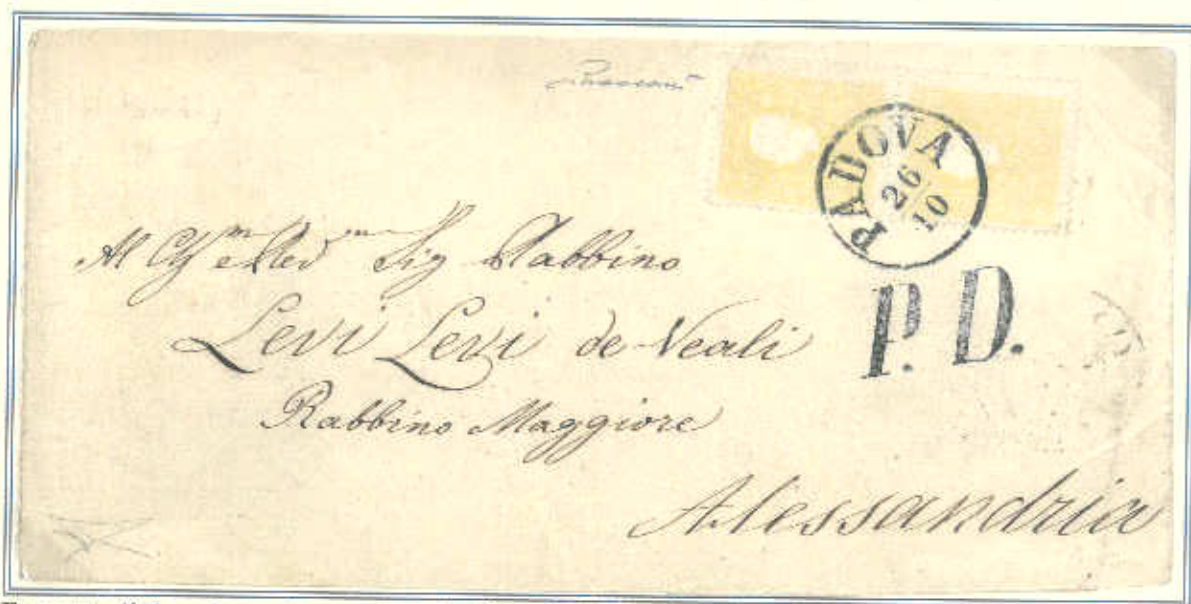 PADOVA
26
10
P. D.
Al Sig Rabbino
Levi Levi de Veali
Rabbino Maggiore
Alessandria